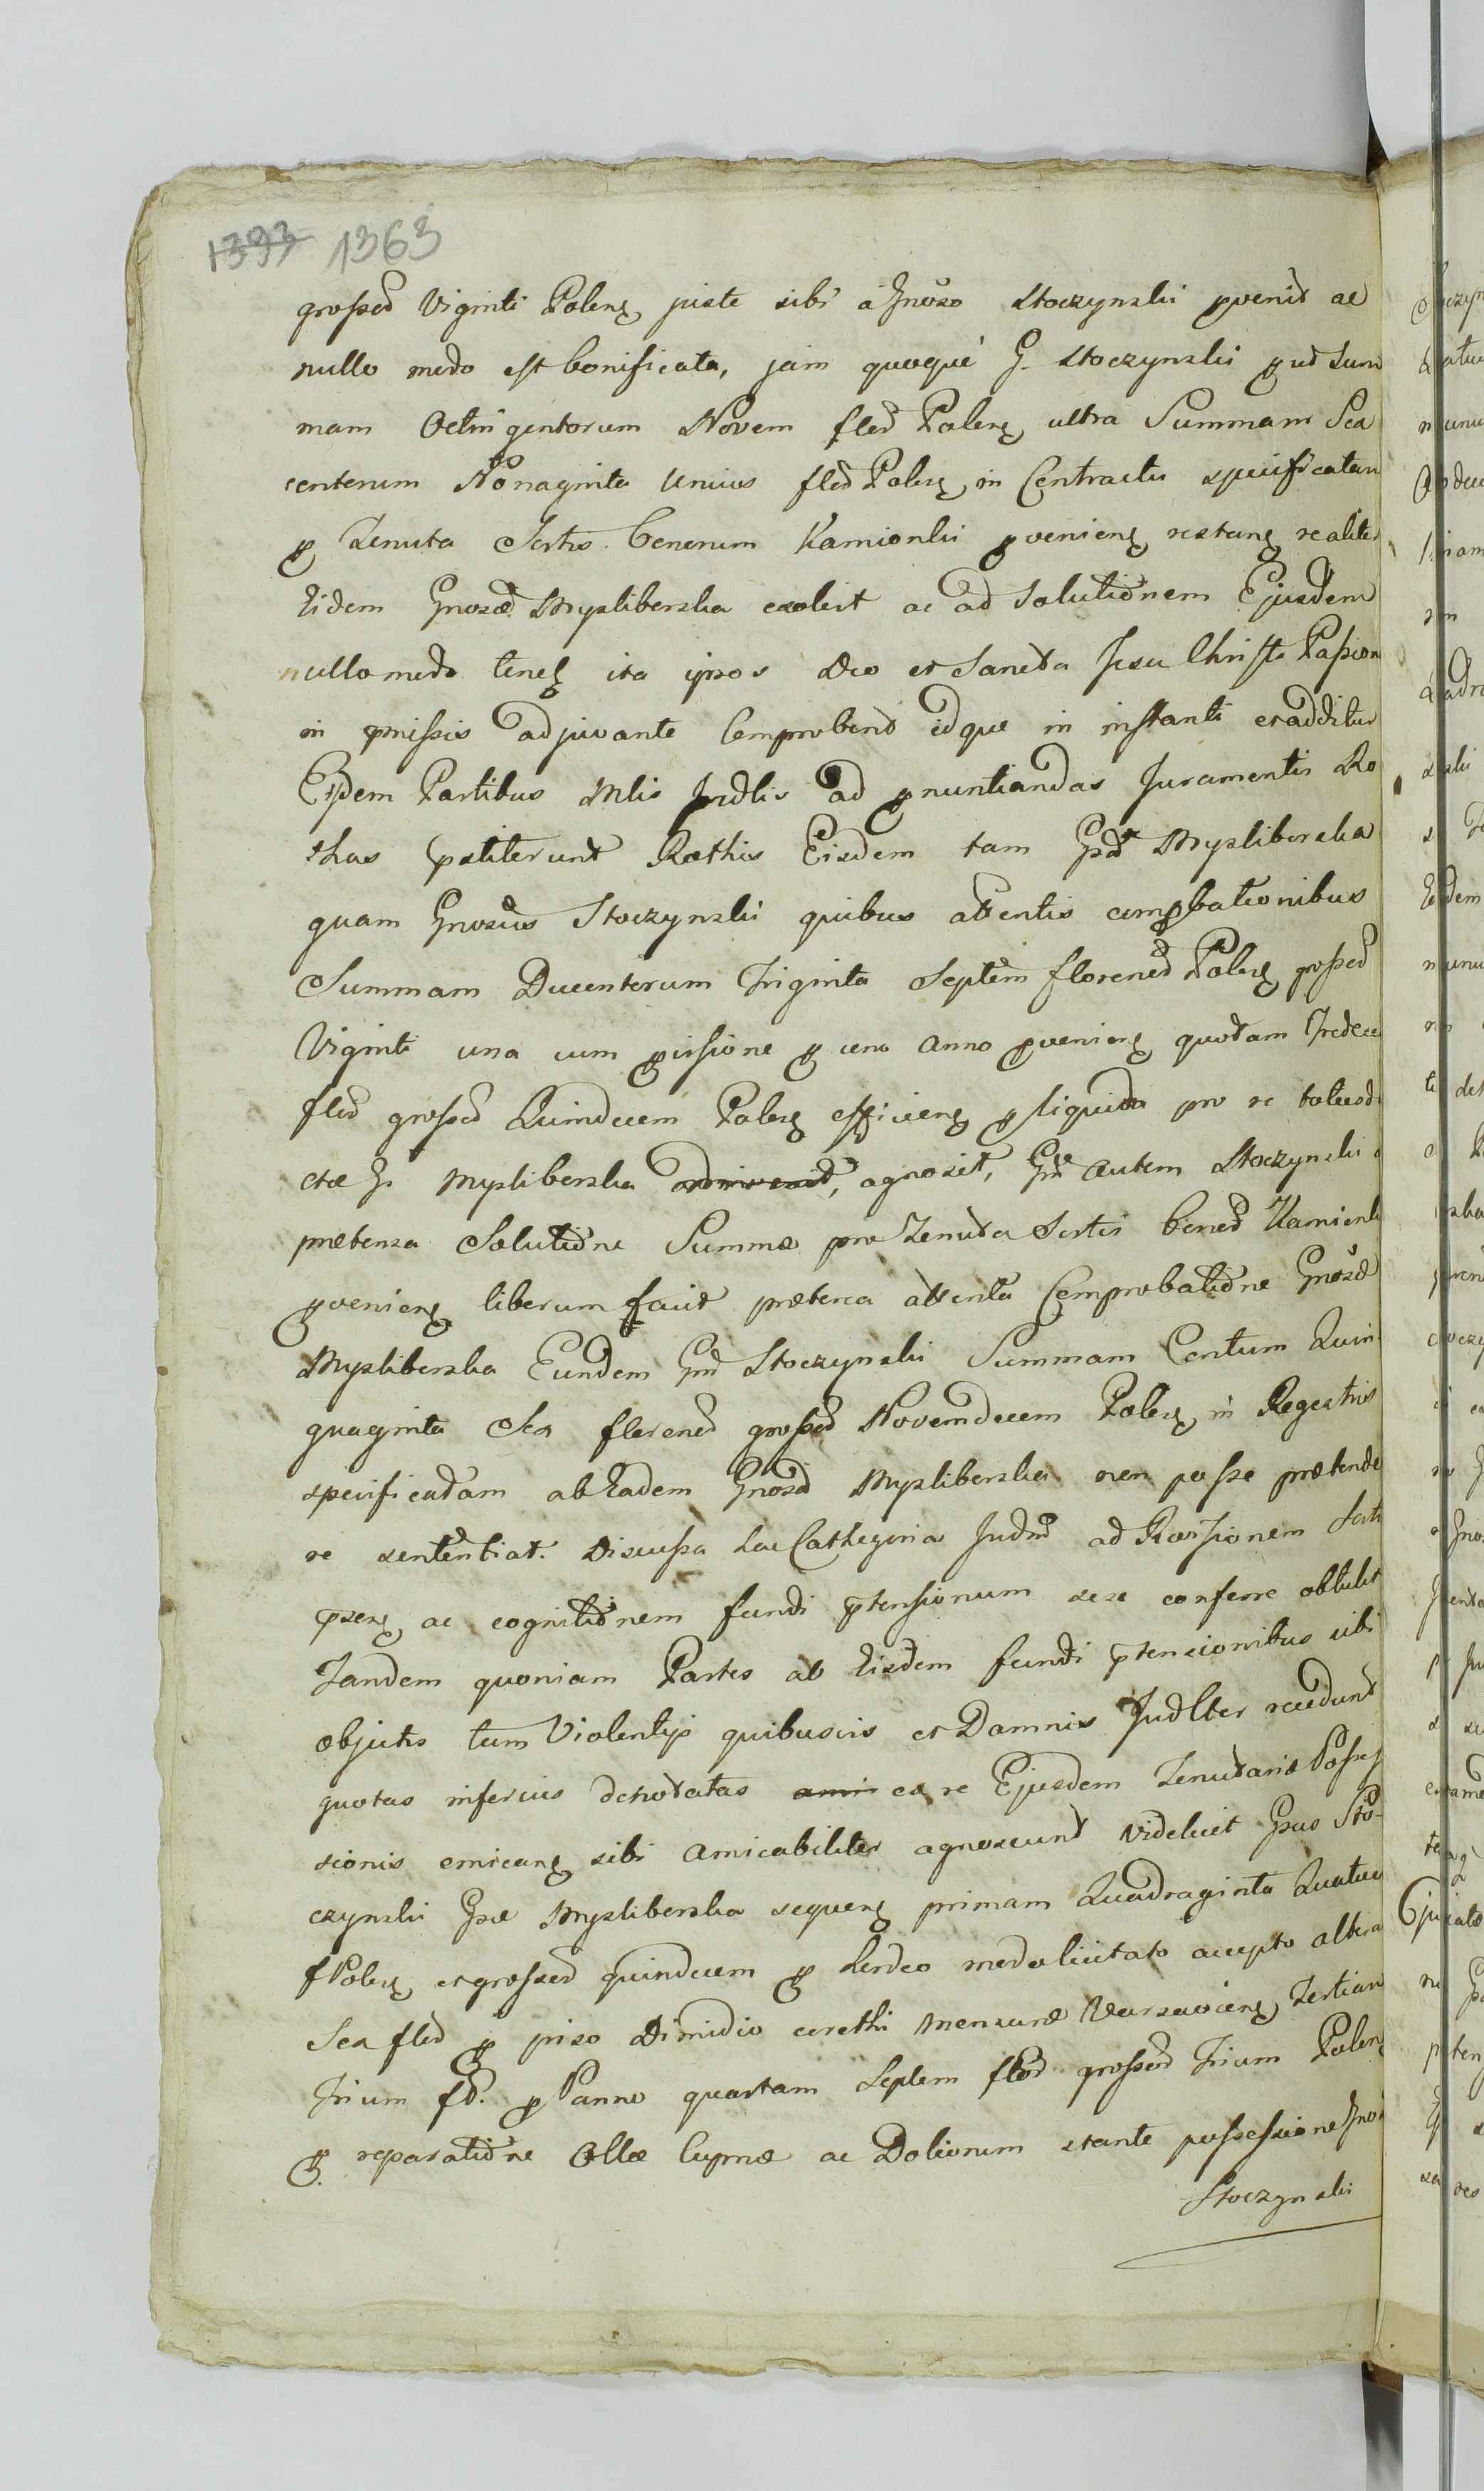 1393 1363
grossed Viginti Polenz juste sibi à Gnoso Stoczynski pvenit ac
nullo modo est bonificata, jam quoque G. Stoczynski qud Sum
mam Octingentorum Novem flor Polenz ultra Summam Sex
centorum Nonaginta Unius flor Polenz in Contractu specificatam
p Tenuta Sortis bonorum Kamionki pvenienz restanz realiter
Eidem Gnosæ Mysliborska exolvit ac ad Solutionem Ejusdem
nullo modo tenet ita ipsos Deo et Sancta Jesu Christi Passion
in pmissis adjuvante Comprobent idque in instanti exadditur
Eisdem Partibus Mlis Judlis ad pnuntiandas Juramentis Ro
thas pstiterunt Rothis Eisdem tam Gsd Myslibirska
quam Gnosus Stoczynski quibus attentis comprobationibus
Summam Ducentorum Triginta Septem florenor Polenz grossor
Viginti una cum pvisione p uno anno pvenienz quotam Tredec
flor grossor Quindecem Polenz efficienz p liquida pro re toties di
ctæ G. Myslibirska adinvenit, agnoscit, Gm autem Stoczynski a
prætensa Solutione Summæ pro Tenuta Sortis bonor Kamionk
pvenienz liberum facit præterea attenta Comprobatione Gnosæ
Mysliborska Eundem Gm Stoczynski Summam Centum Quin
quaginta Sex florenor grossor Novemdecem Polenz in Regestris
specificatam ab Eadem Gnosa Mysliborska non posse prætende
re sententiat. Discussa hac Cathegoria Judm ad Revisionem Sorti
psenz ac cognitionem fundi ptensionum sese conferre obtulit
Tandem quoniam Partes ab Eisdem fundi ptensionibus sibi
objectis tum Violentijs quibusvis et Damnis Judlter recedunt
quotas inferius denotatas ami ex re Ejusdem Tenutariæ Posses
sionis emicanz sibi amicabiliter agnoscunt videlicet Gsus Sto-
czynski Gsæ Mysliborska sequenz primam Quadraginta Quatuor
fPolenz et grossor quindecem p hordeo modo licitato accepto altera
Sex flor p piso Dimidio corethi mensuræ Varsavienz Tertiam
Trium fl. p Panno quartam Septem flor grossor Trium Polenz
p reparatione Ollæ Cupreæ ac Doliorum stante possessione Gnosi
Stoczynski